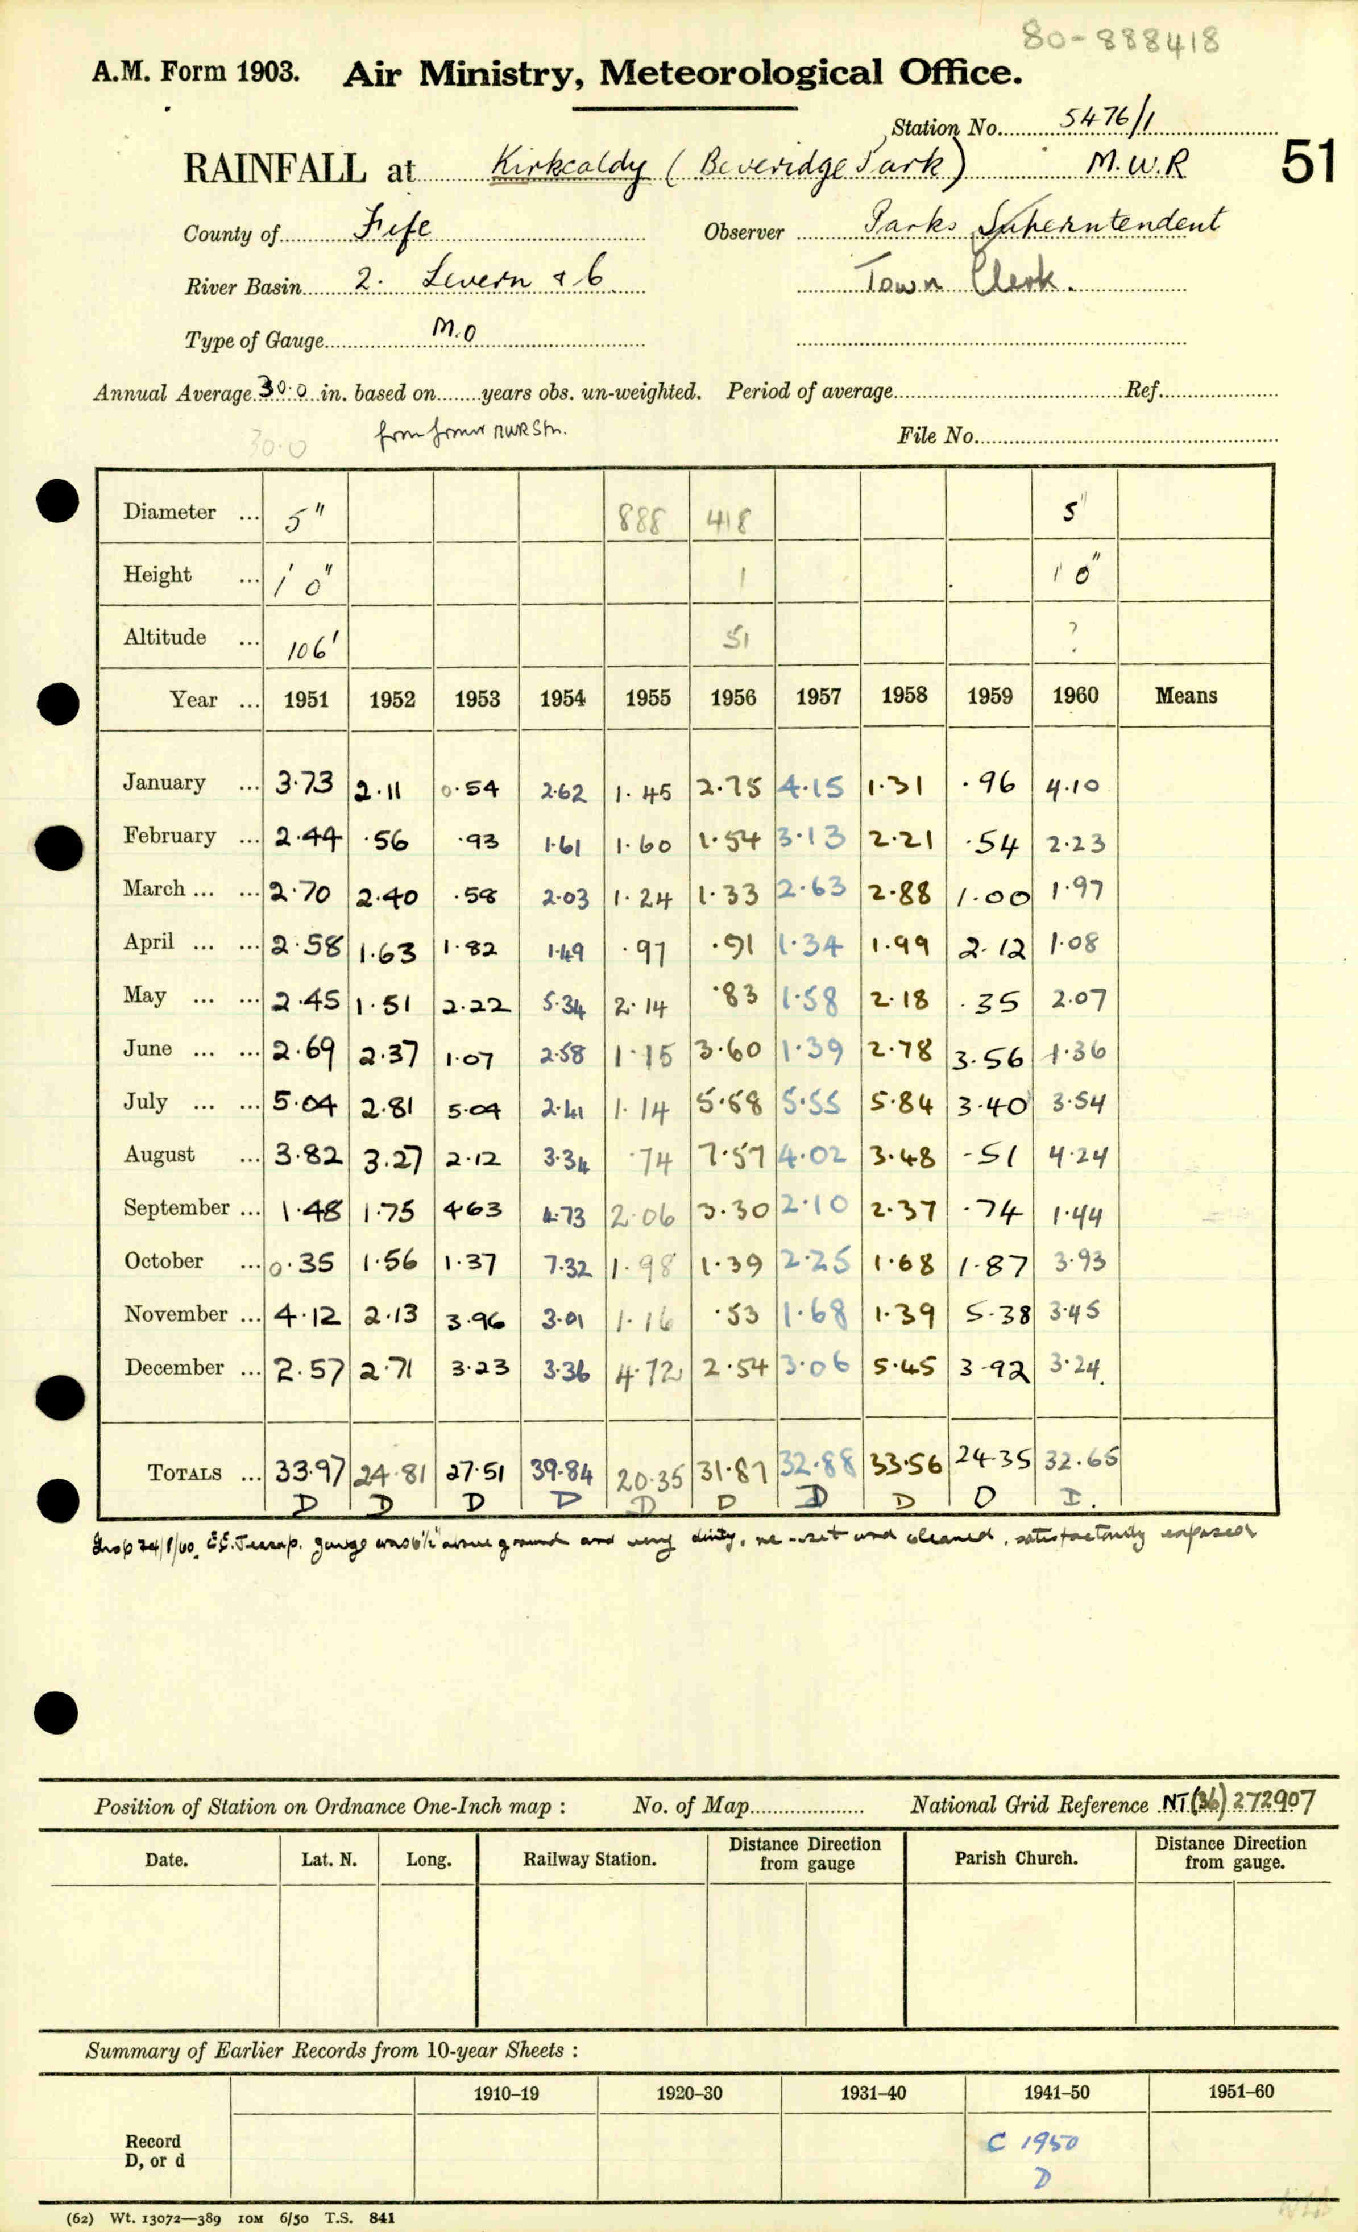 80-888418
A.M. Form 1903. Air Ministry, Meteorological Office.
Station No. 5476/1
RAINFALL at Kirkcaldy (Beveridge Park) M.W.R 51
County of Fife Observer Parks Superintendent
River Basin 2. Levern & 6 Town Clerk.
Type of Gauge M.O
Annual Average 30.0 in. based on years obs. un-weighted. Period of average Ref.
30.0 from former MWR Stn. File No.
Diameter ... 5" 888 418 5"
Height ... 1' 0" 1 1' 0"
Altitude ... 106' 51 ?
Year ... 1951 1952 1953 1954 1955 1956 1957 1958 1959 1960 Means
January ... 3.73 2.11 0.54 2.62 1.45 2.75 4.15 1.31 .96 4.10
February ... 2.44 .56 .93 1.61 1.60 1.54 3.13 2.21 .54 2.23
March ... ... 2.70 2.40 .58 2.03 1.24 1.33 2.63 2.88 1.00 1.97
April ... ... 2.58 1.63 1.82 1.49 .97 .91 1.34 1.99 2.12 1.08
May ... ... 2.45 1.51 2.22 5.34 2.14 .83 1.58 2.18 .35 2.07
June ... ... 2.69 2.37 1.07 2.58 1.15 3.60 1.39 2.78 3.56 1.36
July ... ... 5.04 2.81 5.04 2.41 1.14 5.58 5.55 5.84 3.40 3.54
August ... 3.82 3.27 2.12 3.34 .74 7.57 4.02 3.48 .51 4.24
September ... 1.48 1.75 4.63 4.73 2.06 3.30 2.10 2.37 .74 1.44
October ... 0.35 1.56 1.37 7.32 1.98 1.39 2.25 1.68 1.87 3.93
November ... 4.12 2.13 3.96 3.01 1.16 .53 1.68 1.39 5.38 3.45
December ... 2.57 2.71 3.23 3.36 4.72 2.54 3.06 5.45 3.92 3.24
TOTALS ... 33.97 24.81 27.51 39.84 20.35 31.87 32.88 33.56 24.35 32.65
D D D D D D D D D D.
Insp 24/8/60. gauge was 6½" above ground and very dirty, re-set and cleaned, satisfactorily exposed
Position of Station on Ordnance One-Inch map : No. of Map National Grid Reference NT (36) 272907
Date. Lat. N. Long. Railway Station. Distance Direction from gauge Parish Church. Distance Direction from gauge.
Summary of Earlier Records from 10-year Sheets :
1910–19 1920–30 1931–40 1941–50 1951–60
Record C 1950
D, or d D
(62) Wt. 13072—389 10M 6/50 T.S. 841